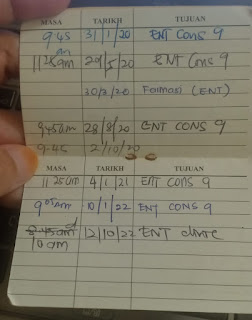 MASA TARIKH TUJUAN
9 45 31/1/20 ENT Cons 9
11 25am 29/5/20 ENT Cons 9
30/2/20 (ENT)
9.45am 28/8/20 ENT CONS 9
9-45 2/10/20
MASA TARIKH TUJUAN
11 25am 4/1/21 ENT CONS 9
9 am 10/1/22 ENT CONS 9
8.45am
10 am 12/10/22 ENT clinic